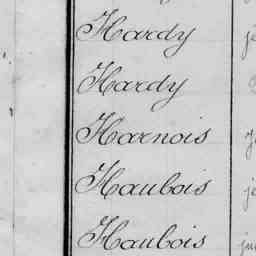 Hardy
Hardy
Harnois
Haubois
Haubois